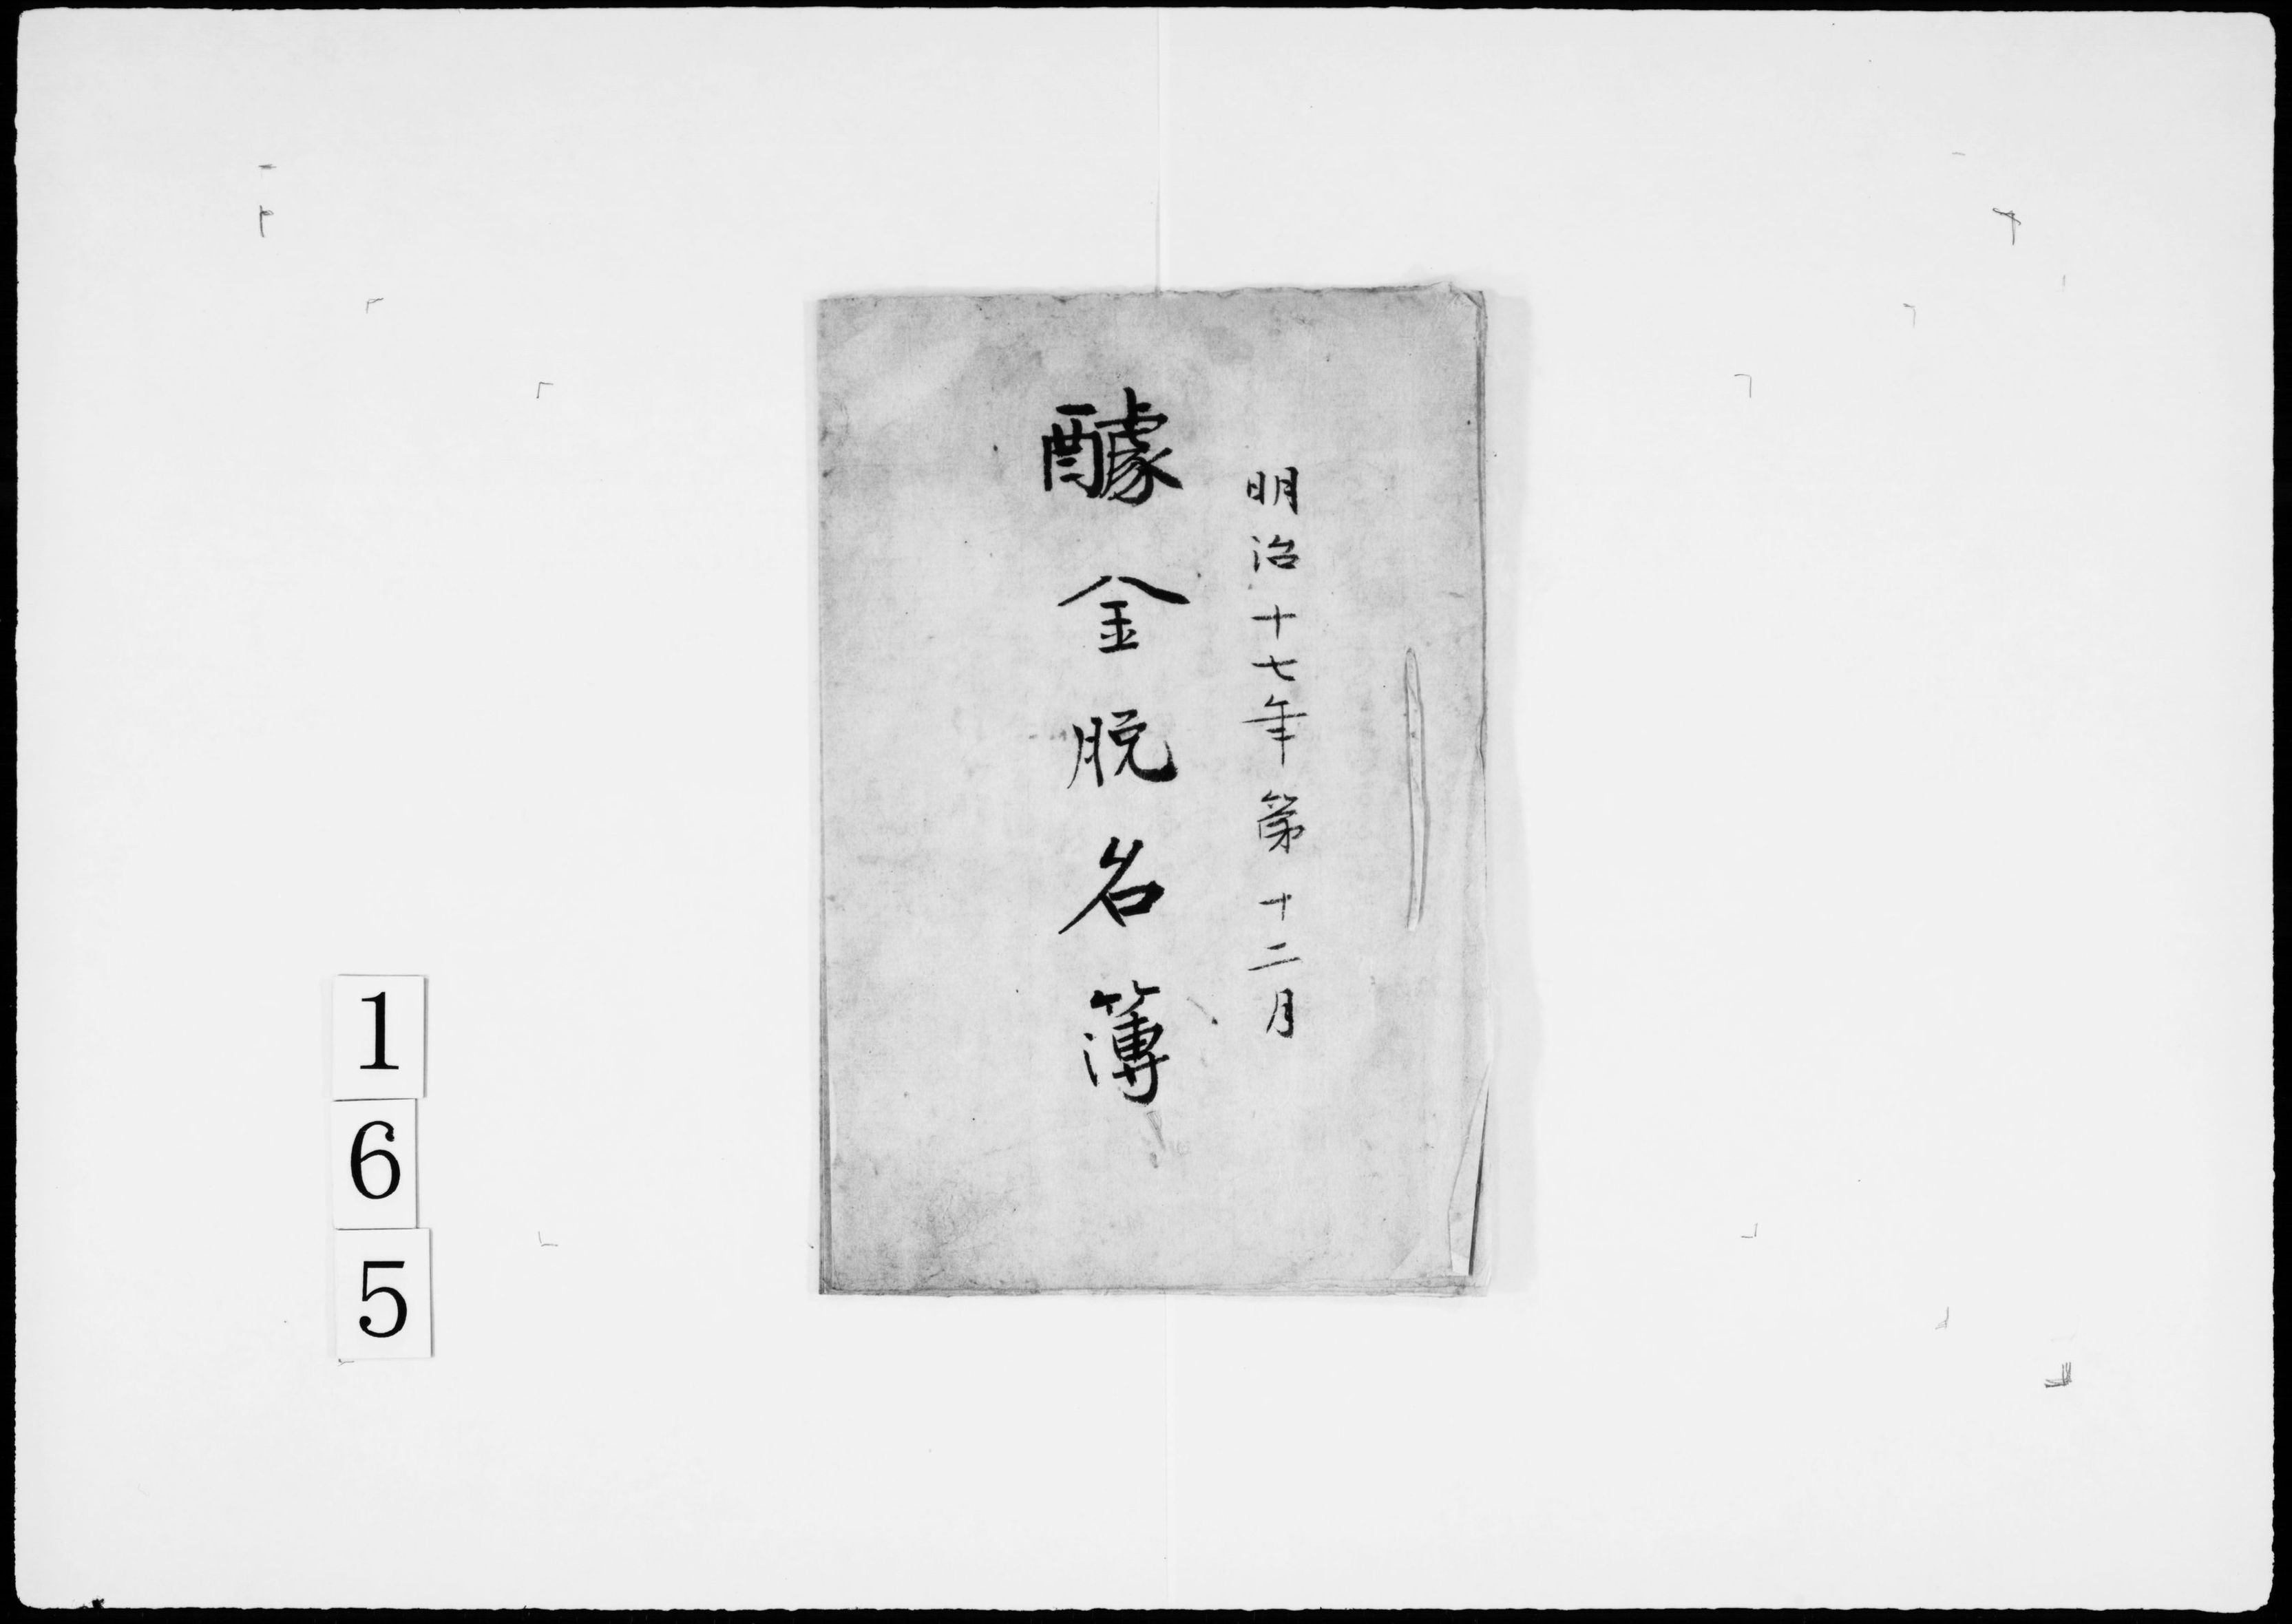 明治十七年第十二月
醵金脱名簿
165